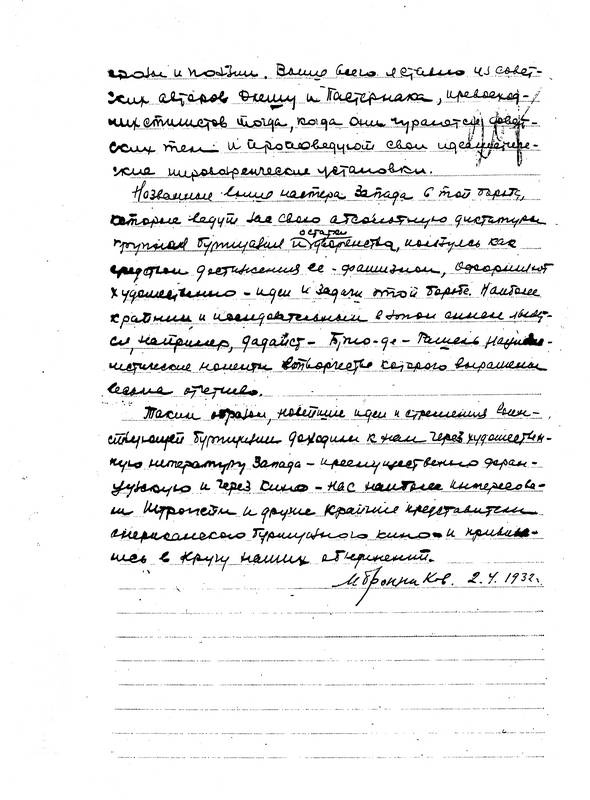 прозы и поэзии. Выше всего я ставлю из совет-
ских авторов Олешу и Пастернака, превосход-
ных стилистов тогда, когда они чураются совет-
ских тем и проповедуют свои идеалистиче-
ские мировоззренческие установки.
Названные выше мастера Запада в той борьбе,
которую ведут за свою абсолютную диктатуру
крупная буржуазия и остатки дворянства, пользуясь как
средством достижения ее - фашизмом, оформляют
художественно - идеи и задачи этой борьбы. Наиболее
крайним и последовательным в этом смысле являет-
ся, например, дадаист -
моменты в творчестве которого выражены
весьма отчетливо.
Таким образом, новейшие идеи и стремления воин-
ствующей буржуазии доходили к нам через художествен-
ную литературу Запада - преимущественно фран-
цузскую и через кино - нас наиболее интересова-
ли и другие крайние представители
американского буржуазного кино - и привива-
лись в кругу наших сборищ
М Бронников. 2.V.1932г.